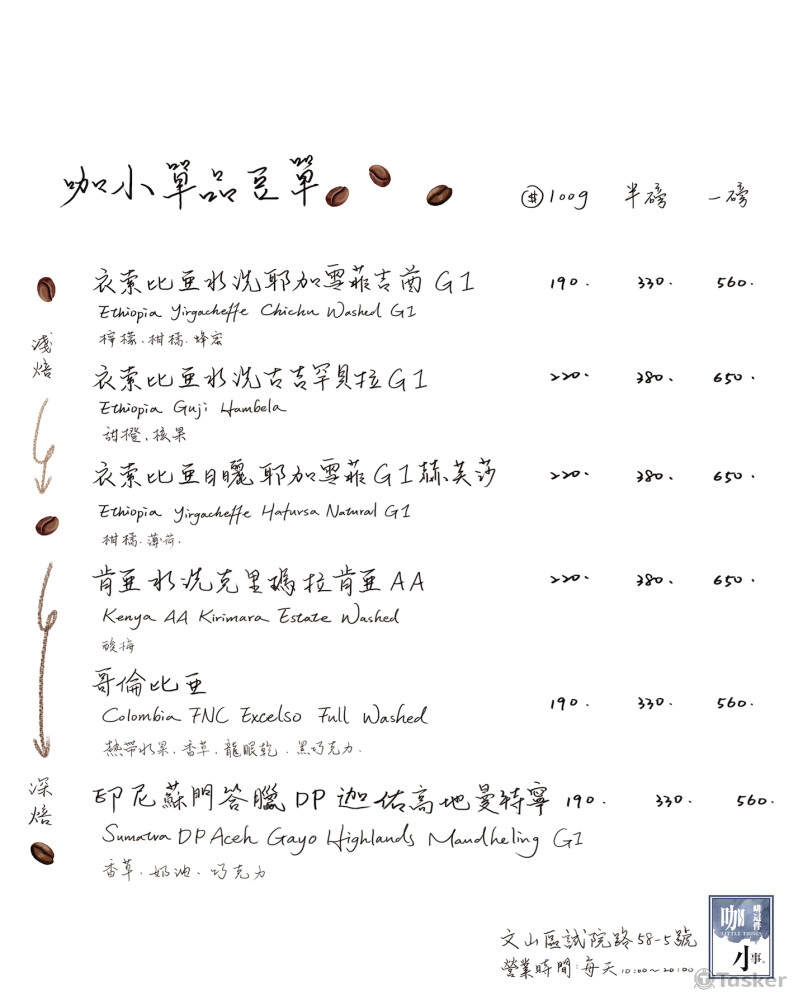 咖小單品豆單 $100g 半磅 一磅
衣索比亞水洗耶加雪菲吉酋 G1 190. 330. 560.
Ethiopia Yirgacheffe Chichu Washed G1
檸檬.柑橘.蜂蜜
淺焙
衣索比亞水洗古吉罕貝拉G1 220. 380. 650.
Ethiopia Guji Hambela
甜橙、核果
衣索比亞日曬耶加雪菲G1赫芙莎 220. 380. 650.
Ethiopia Yirgacheffe Hafursa Natural G1
柑橘.薄荷.
肯亞水洗克里瑪拉肯亞AA 220. 380. 650.
Kenya AA Kirimara Estate Washed
酸梅
哥倫比亞 190. 330. 560.
Colombia FNC Excelso Full Washed
熱帶水果.香草.龍眼乾.黑巧克力.
深焙
印尼蘇門答臘DP迦佑高地曼特寧 190. 330. 560.
Sumatra DP Aceh Gayo Highlands Mandheling G1
香草.奶油.巧克力
文山區試院路58-5號
營業時間:每天10:00~20:00
咖啡這件小事。
LITTLE THINGS
Tasker